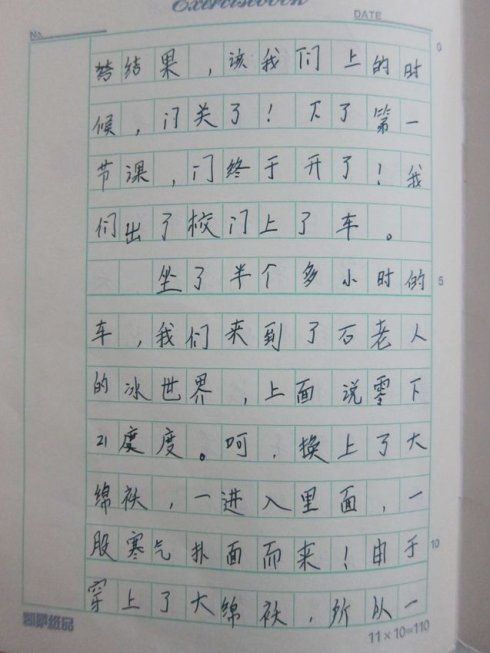 Exercisebook
No.
DATE
0
梦结果，该我们上的时
候，门关了！下了第一
节课，门终于开了！我
们出了校门上了车。
坐了半个多小时的 5
车，我们来到了石老人
的冰世界，上面说零下
21度度。呵，换上了大
绵袄，一进入里面，一
股寒气扑面而来！由于 10
穿上了大绵袄，所从一
11×10=110